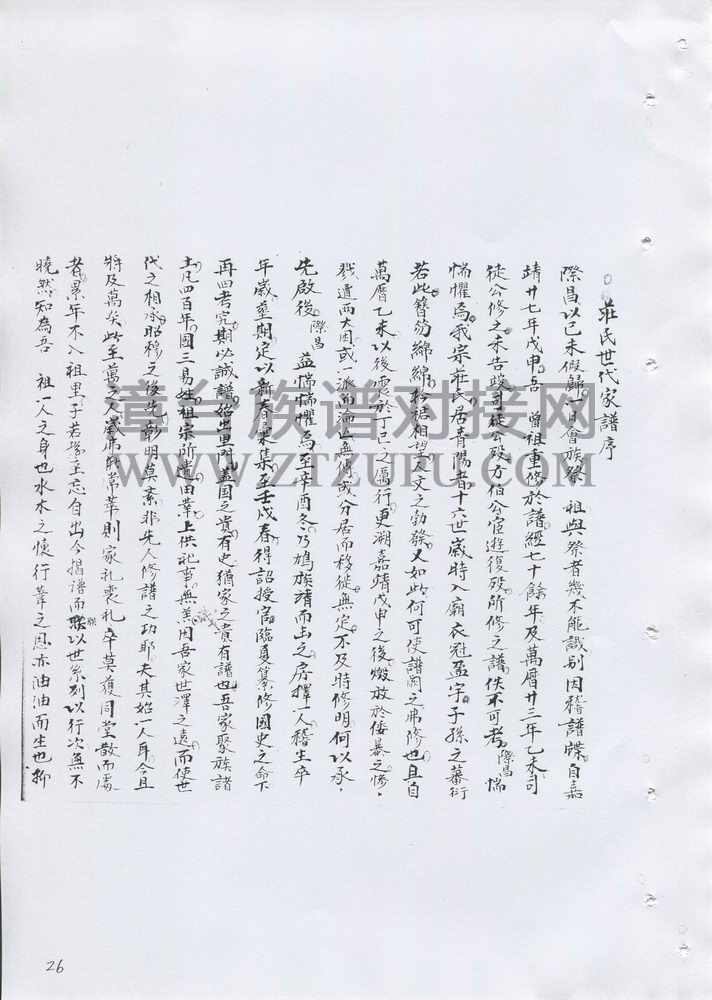 莊氏世代家譜序
際昌以己未假歸八月會族祭 祖與祭者幾不能識別因稽譜牒自嘉
靖廿七年戊申吾 曾祖重修於譜經七十餘年及萬曆廿三年乙未司
徒公修之未告竣司徒公歿方伯公宦遊復歿所修之譜佚不可考際昌惴
惴懼焉我宗莊氏居青陽者十六世歲時入廟衣冠盈宇子孫之蕃衍
若此簪笏綿綿松梧相望人文之勃發又如此何可使譜闕之弗修也且自
萬曆乙未以後震於丁巳之厲行更溯嘉靖戊申之後燬放於倭暴之慘
戮遺而大因或一派而淪亡無傳或分居而移徙無定不及時修明何以承
先啟後 際昌 益惴惴懼焉至辛酉冬乃鳩族靖而告之房擇一人稽生卒
年歲塋期定以新春彙集至壬戌春得詔授官臨夏纂修國史之命下
再四考究期以誠譜始出里門蓋国之貴有史猶家之貴有譜也吾家聚族諸
土凡四百年國三易姓祖宗所遺田業上供祀事無羔因吾家世澤之遠而使世
代之相承昭穆之後先彰明莫紊非先人修譜之功耶夫其始一人耳今且
將及萬矣此至萬之人歲席 葬則家礼喪礼卒莫獲同堂散而處
者累年不入祖里子若孫至忘自出今揭譜而聯以世系列以行次無不
曉然知為吾 祖一人之身也水木之懷行葦之恩亦油油而生也抑
漳台族谱对接网
WWW.ZTZUPU.COM
26